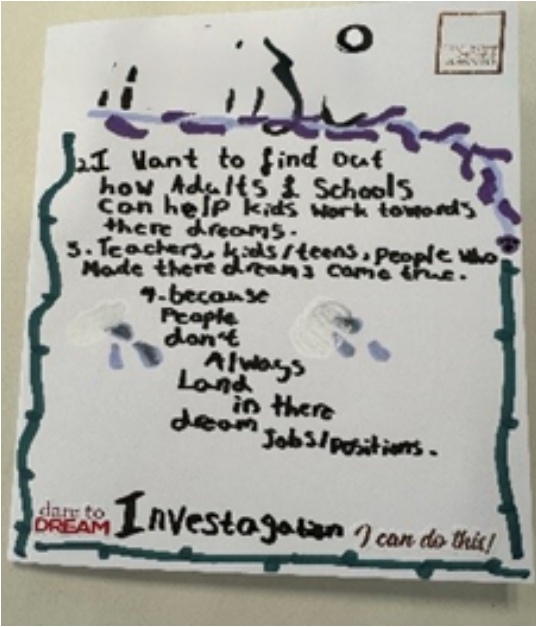 2. I Want to find out
how Adults & Schools
can help kids work towards
there dreams.
3. Teachers, kids/teens, people who
Made there dreams come true.
4. because
People
don't
Always
Land
in there
dream
Jobs/positions.
dare to
DREAM
Investagation
I can do this!